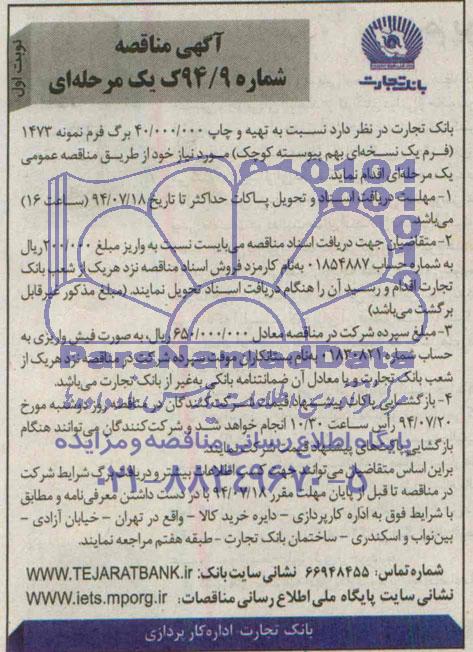 آگهی مناقصه
شماره ۹۴/۹ک یک مرحله‌ای
نوبت اول
بانک تجارت
بانک تجارت در نظر دارد نسبت به تهیه و چاپ ۴۰/۰۰۰/۰۰۰ برگ فرم نمونه ۱۴۷۳
(فرم یک نسخه‌ای بهم پیوسته کوچک) مورد نیاز خود از طریق مناقصه عمومی
یک مرحله‌ای اقدام نماید.
۱- مهلت دریافت اسناد و تحویل پاکات حداکثر تا تاریخ ۹۴/۰۷/۱۸ (ساعت ۱۶)
می‌باشد.
۲- متقاضیان جهت دریافت اسناد مناقصه می‌بایست نسبت به واریز مبلغ ۲۰۰/۰۰۰ ریال
به شماره حساب ۰۱۸۵۴۸۸۷ به‌نام کارمزد فروش اسناد مناقصه نزد هریک از شعب بانک
تجارت اقدام و رسید آن را هنگام دریافت اسناد تحویل نمایند. (مبلغ مذکور غیرقابل
برگشت می‌باشد)
۳- مبلغ سپرده شرکت در مناقصه معادل ۶۵۰/۰۰۰/۰۰۰ ریال، به صورت فیش واریزی به
حساب شماره ۰۱۸۳۰۸۲۱ به‌نام بستانکاران موقت سپرده شرکت در مناقصه نزد هریک از
شعب بانک تجارت و یا معادل آن ضمانتنامه بانکی به‌غیر از بانک تجارت می‌باشد.
۴- بازگشایی پاکات پیشنهاد قیمت شرکت کنندگان در مناقصه روز دوشنبه مورخ
۹۴/۰۷/۲۰ رأس ساعت ۱۰/۳۰ انجام خواهد شد و شرکت‌کنندگان می‌توانند هنگام
بازگشایی پاکت‌های پیشنهاد قیمت شرکت نمایند.
براین اساس متقاضیان می‌توانند جهت کسب اطلاعات بیشتر و دریافت برگ شرایط شرکت
در مناقصه تا قبل از پایان مهلت مقرر ۹۴/۰۷/۱۸ با در دست داشتن معرفی‌نامه و مطابق
با شرایط فوق به اداره کارپردازی – دایره خرید کالا – واقع در تهران – خیابان آزادی –
بین نواب و اسکندری – ساختمان بانک تجارت – طبقه هفتم مراجعه نمایند.
شماره تماس: ۶۶۹۴۸۴۵۵ نشانی سایت بانک: WWW.TEJARATBANK.ir
نشانی سایت پایگاه ملی اطلاع رسانی مناقصات: WWW.iets.mporg.ir
بانک تجارت - اداره کارپردازی
ParsNamadData
پایگاه اطلاع رسانی مناقصه و مزایده
۰۲۱-۸۸۳۴۹۶۷۰-۵